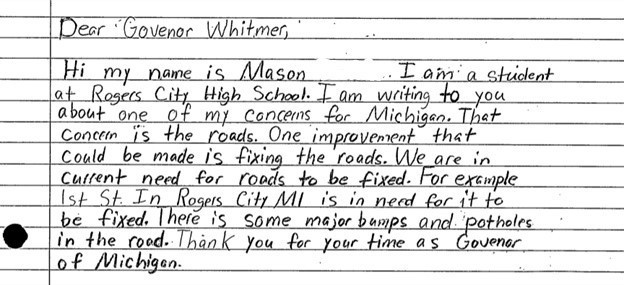 Dear Govenor Whitmer,
Hi my name is Mason . I am a student
at Rogers City High School. I am writing to you
about one of my concerns for Michigan. That
concern is the roads. One improvement that
could be made is fixing the roads. We are in
current need for roads to be fixed. For example
1st St. In Rogers City MI is in need for it to
be fixed. There is some major bumps and potholes
in the road. Thank you for your time as Govenor
of Michigan.